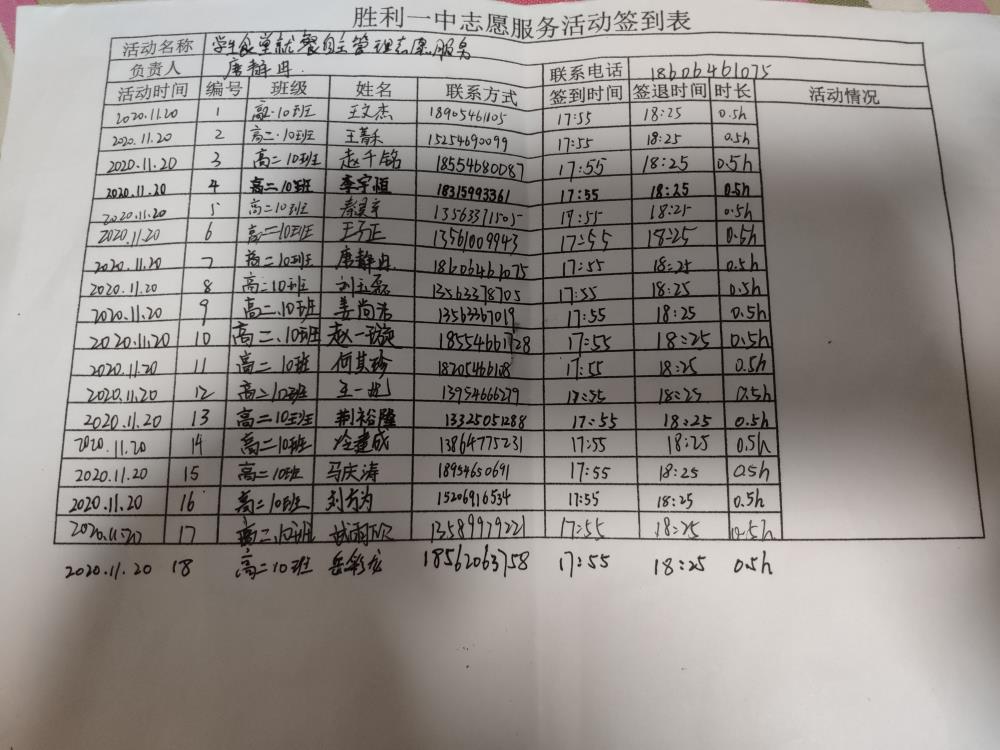 胜利一中志愿服务活动签到表
活动名称 学生食堂就餐自主管理志愿服务
负责人 唐静冉 联系电话 18606461075
活动时间 编号 班级 姓名 联系方式 签到时间 签退时间 时长 活动情况
2020.11.20 1 高二.10班 王文杰 18905461105 17:55 18:25 0.5h
2020.11.20 2 高二.10班 王菁禾 15254690099 17:55 18:25 0.5h
2020.11.20 3 高二10班 赵千铭 18554680087 17:55 18:25 0.5h
2020.11.20 4 高二10班 李宇恒 18315993361 17:55 18:25 0.5h
2020.11.20 5 高二10班 13563371505 17:55 18:25 0.5h
2020.11.20 6 高二10班 王子正 13561009943 17:55 18:25 0.5h
2020.11.20 7 高二10班 唐静冉 18606461075 17:55 18:25 0.5h
2020.11.20 8 高二10班 刘玉磊 13563378705 17:55 18:25 0.5h
2020.11.20 9 高二.10班 姜尚浩 13563367019 17:55 18:25 0.5h
2020.11.20 10 高二.10班 赵一璇 18554661728 17:55 18:25 0.5h
2020.11.20 11 高二10班 何其珍 17:55 18:25 0.5h
2020.11.20 12 高二10班 13954666279 17:55 18:25 0.5h
2020.11.20 13 高二10班 荆裕隆 13325051288 17:55 18:25 0.5h
2020.11.20 14 高二10班 冷建成 13864775231 17:55 18:25 0.5h
2020.11.20 15 高二10班 马庆涛 18954650691 17:55 18:25 0.5h
2020.11.20 16 高二10班 刘方为 15206916534 17:55 18:25 0.5h
2020.11.20 17 高二.10班 13589979221 17:55 18:25 0.5h
2020.11.20 18 高二10班 岳彩龙 18562063758 17:55 18:25 0.5h